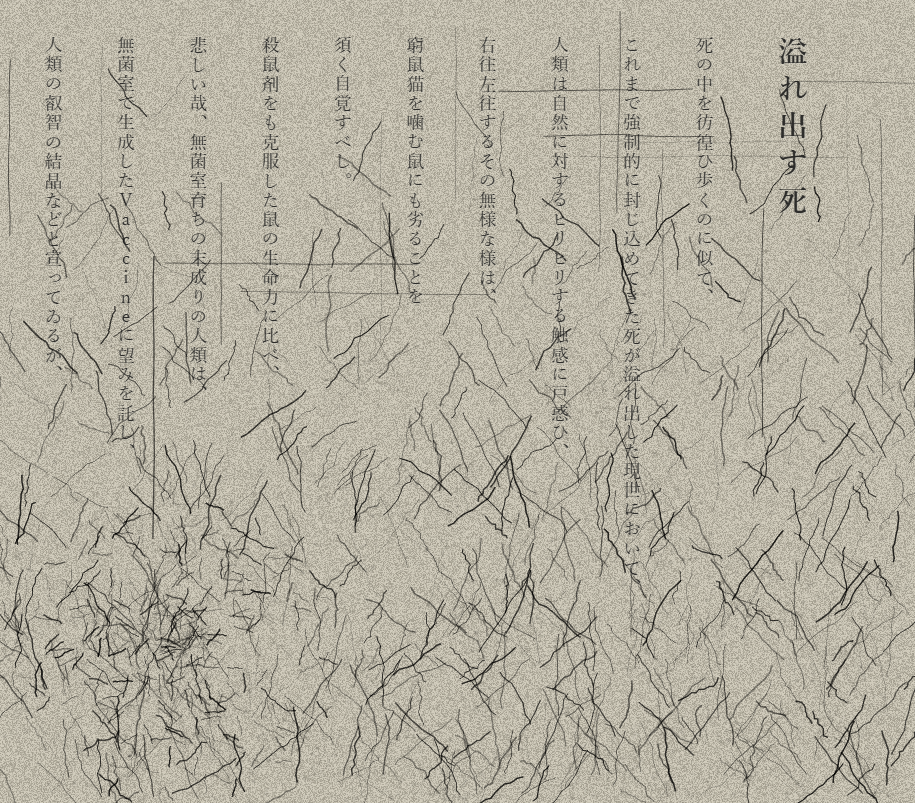 溢れ出す死
死の中を彷徨ひ歩くのに似て、
これまで強制的に封じ込めてきた死が溢れ出した現世において、
人類は自然に対するヒリヒリする触感に戸惑ひ、
右往左往するその無様な様は、
窮鼠猫を噛む鼠にも劣ることを
須く自覚すべし。
殺鼠剤をも克服した鼠の生命力に比べ、
悲しい哉、無菌室育ちの末成りの人類は、
無菌室で生成したVaccineに望みを託し、
人類の叡智の結晶などと言ってゐるが、